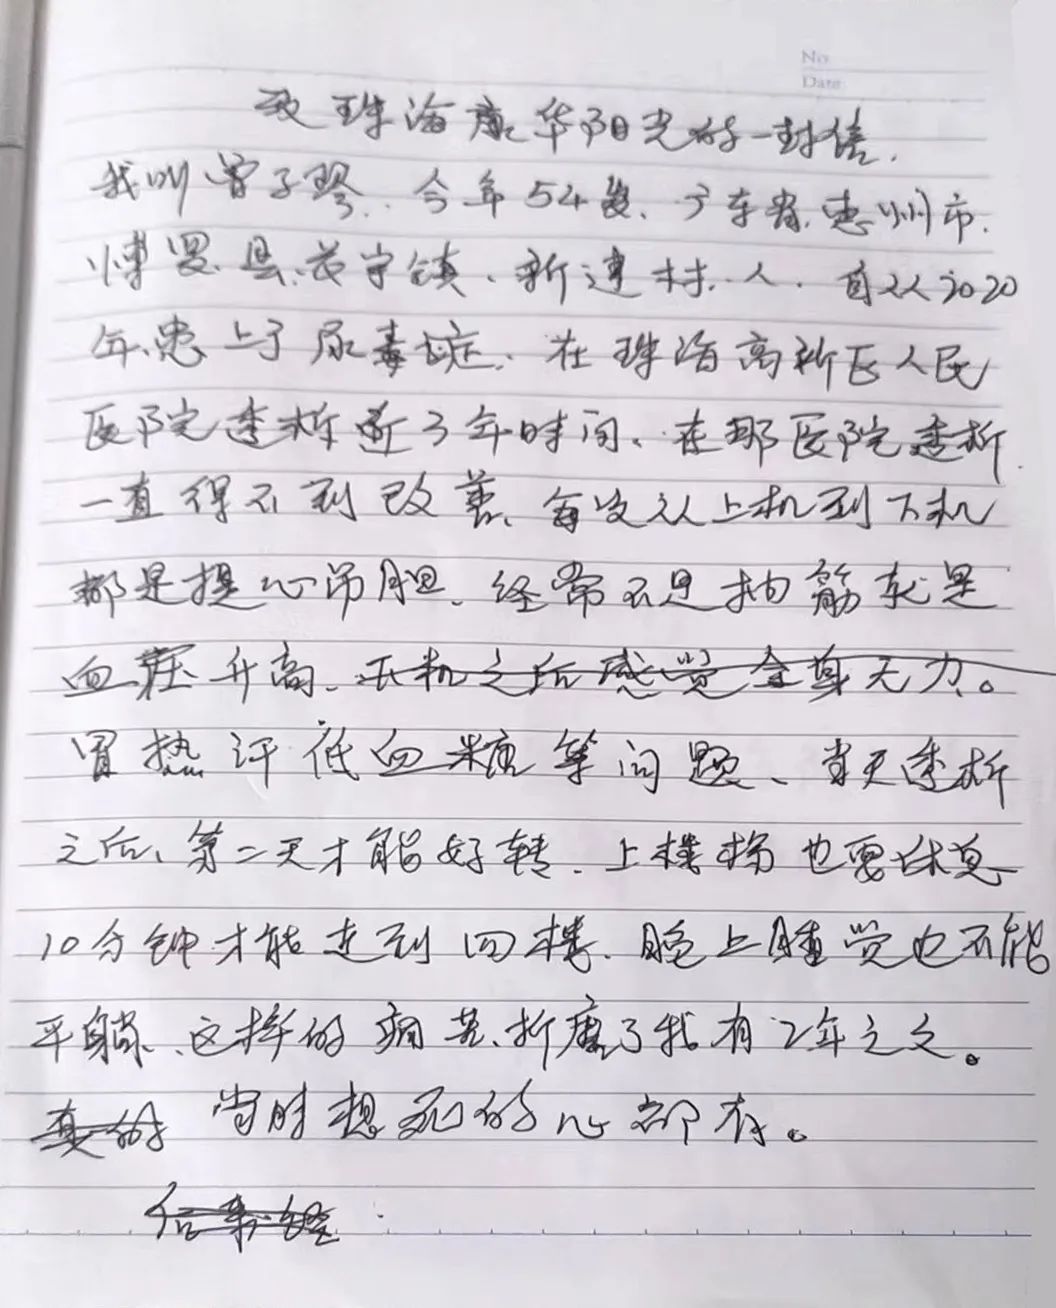 No
Date
致珠海康华阳光的一封信.
我叫曾子璆.今年54岁、广东省.惠州市.
博罗.县.芯宁镇、新建村.人.自从2020
年.患上了尿毒症.在珠海高新区人民
医院透析近3年时间、在那医院透析
一直得不到改善、每次从上机到下机
都是提心吊胆、经常不是抽筋就是
血压升高、下机之后感觉全身无力。
冒热汗低血糖等问题、当天透析
之后、第二天才能好转.上楼梯也要休息
10分钟才能走到四楼.晚上睡觉也不能
平躺、这样的痛苦、折磨了我有2年之久。
真的 当时想死的心都有。
后来经